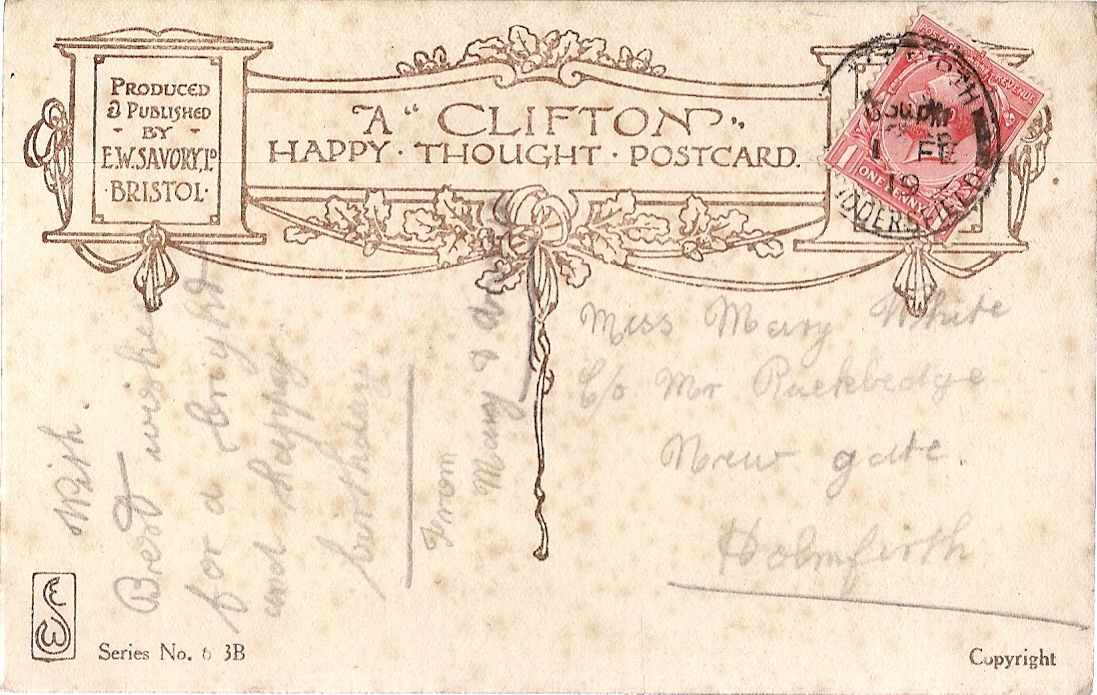 PRODUCED
& PUBLISHED
BY
E.W. SAVORY, LD
BRISTOL
A "CLIFTON"
HAPPY · THOUGHT · POSTCARD.
POSTAGE REVENUE
ONE PENNY
HOLMFIRTH
1 FE
19
HUDDERSFIELD
Miss Mary White
C/o Mr
New gate.
Holmfirth
With
Best wishes
for a bright
and happy
birthday
From
Mary &
Series No. 3B
Copyright